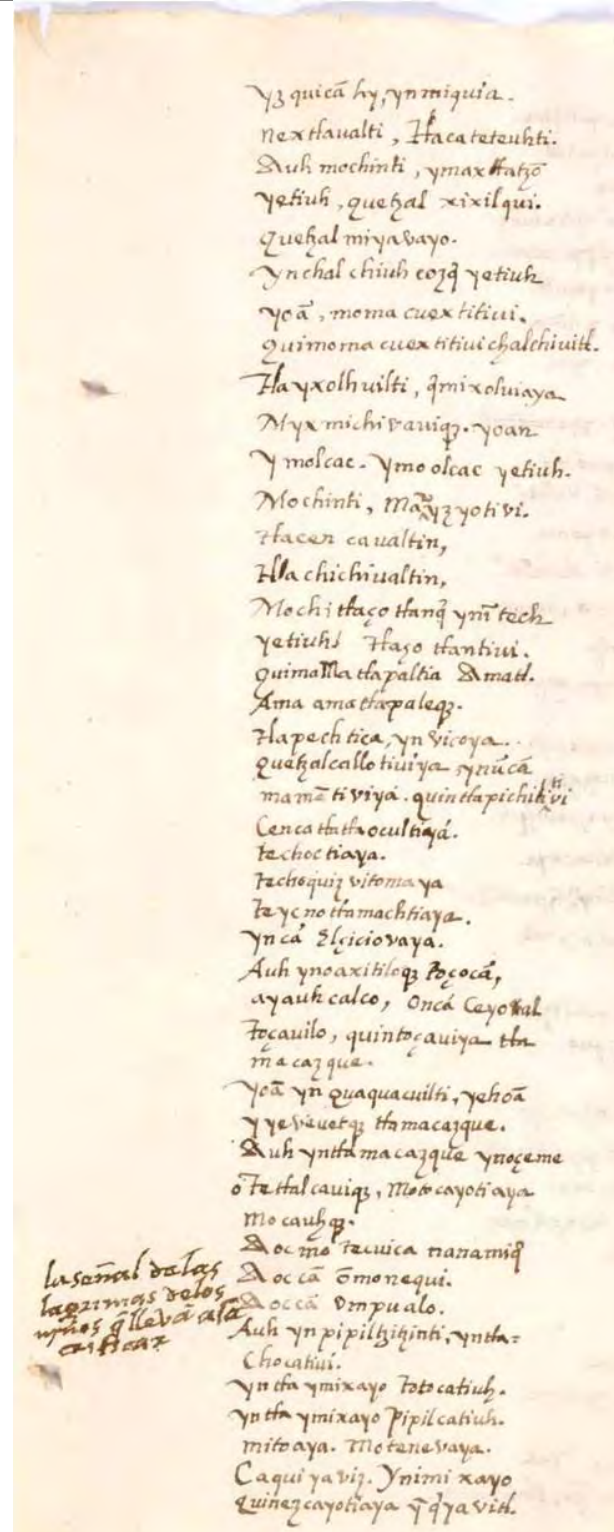 yz quicā hy, yn miquia.
nextlavalti, tlacateteuhti.
Auh mochinti, ymaxtlatzō
yetiuh, quetzal xixilqui.
quetzal miyavayo.
yn chalchiuh cozq̄ yetiuh
yoā, moma cuextitivi.
quimoma cuextitivi chalchivitl.
tlayxolhuilti, q̄mixolviaya
Myxmichivauiqȝ. yoan
y molcac. ymo olcac yetiuh.
Mochinti, yzyotivi.
tlacen cavaltin,
tlachichivaltin,
Mochi tlaço tlanq̄ ynītech
yetiuh tlaço tlantivi.
quimamatlapaltia Amatl.
Ama amatlapaleqȝ.
tlapechtica, yn vicoya.
quetzalcallotiviya ynūcā
mamātiviyā. quintlapichilitivi
Cenca tlatlaocultiayā.
techoctiaya.
techoquiz vitomaya
teycnotlamachtiaya.
yn cā Elçiciovaya.
Auh ynoaxitiloqȝ toçocā,
ayauhcalco, Oncā Ceyoval
toçavilo, quintoçaviya tla
macazque.
yoā yn quaquacuilti, yehoā
yyevevetqȝ tlamacazque.
Auh yntlamacazque ynoçeme
otetlalcaviqȝ, Motocayotiaya
Mocauhqȝ.
Aocmo tecuica nanamiq̄
Aoccā ōmonequi.
Aoccā vmpualo.
Auh yn pipiltzitzinti, yntla=
Chocativi.
yntla ymixayo totocatiuh.
yntla ymixayo Pipilcatiuh.
mitoaya. Motenevaya.
Ca quiyaviz. Ynimixayo
quinezcayotiaya yn̄ q̄yavitl.
la señal de las
lagrimas delos
niños q̄ llevā a sā
crificar